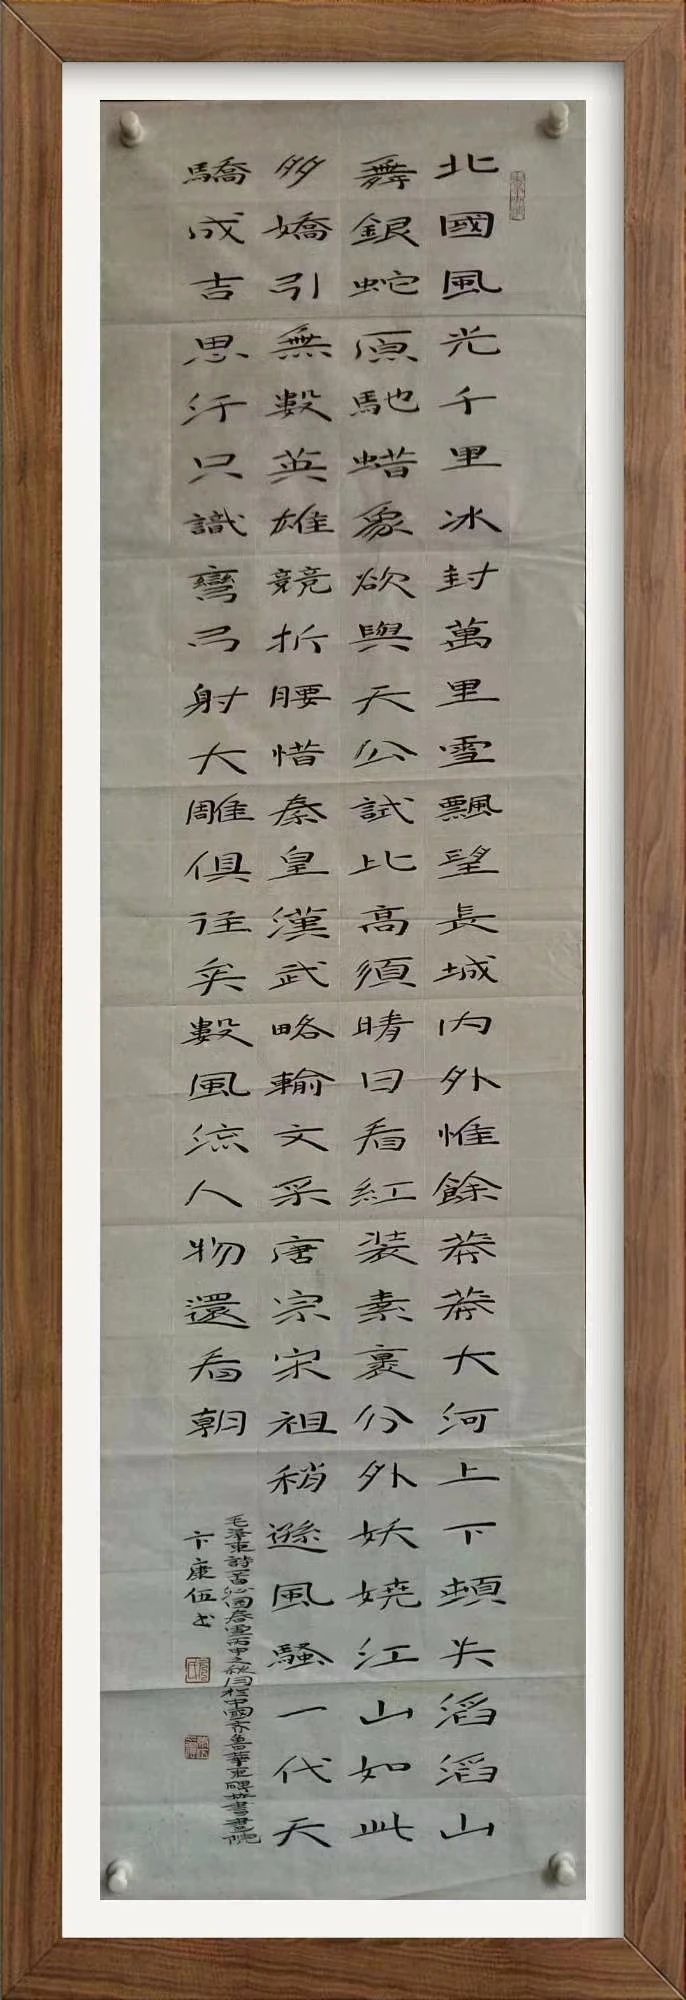 北國風光千里冰封萬里雪飄望長城内外惟餘莽莽大河上下頓失滔滔山
舞銀蛇原馳蜡象欲與天公試比高須晴日看紅装素裹分外妖嬈江山如此
多嬌引無數英雄競折腰惜秦皇漢武略輸文采唐宗宋祖稍遜風騷一代天
驕成吉思汗只識彎弓射大雕俱往矣數風流人物還看朝
毛澤東詩一首沁園春雪丙申之秋月於中國齐魯華東碑林書畫院
卞康伍书